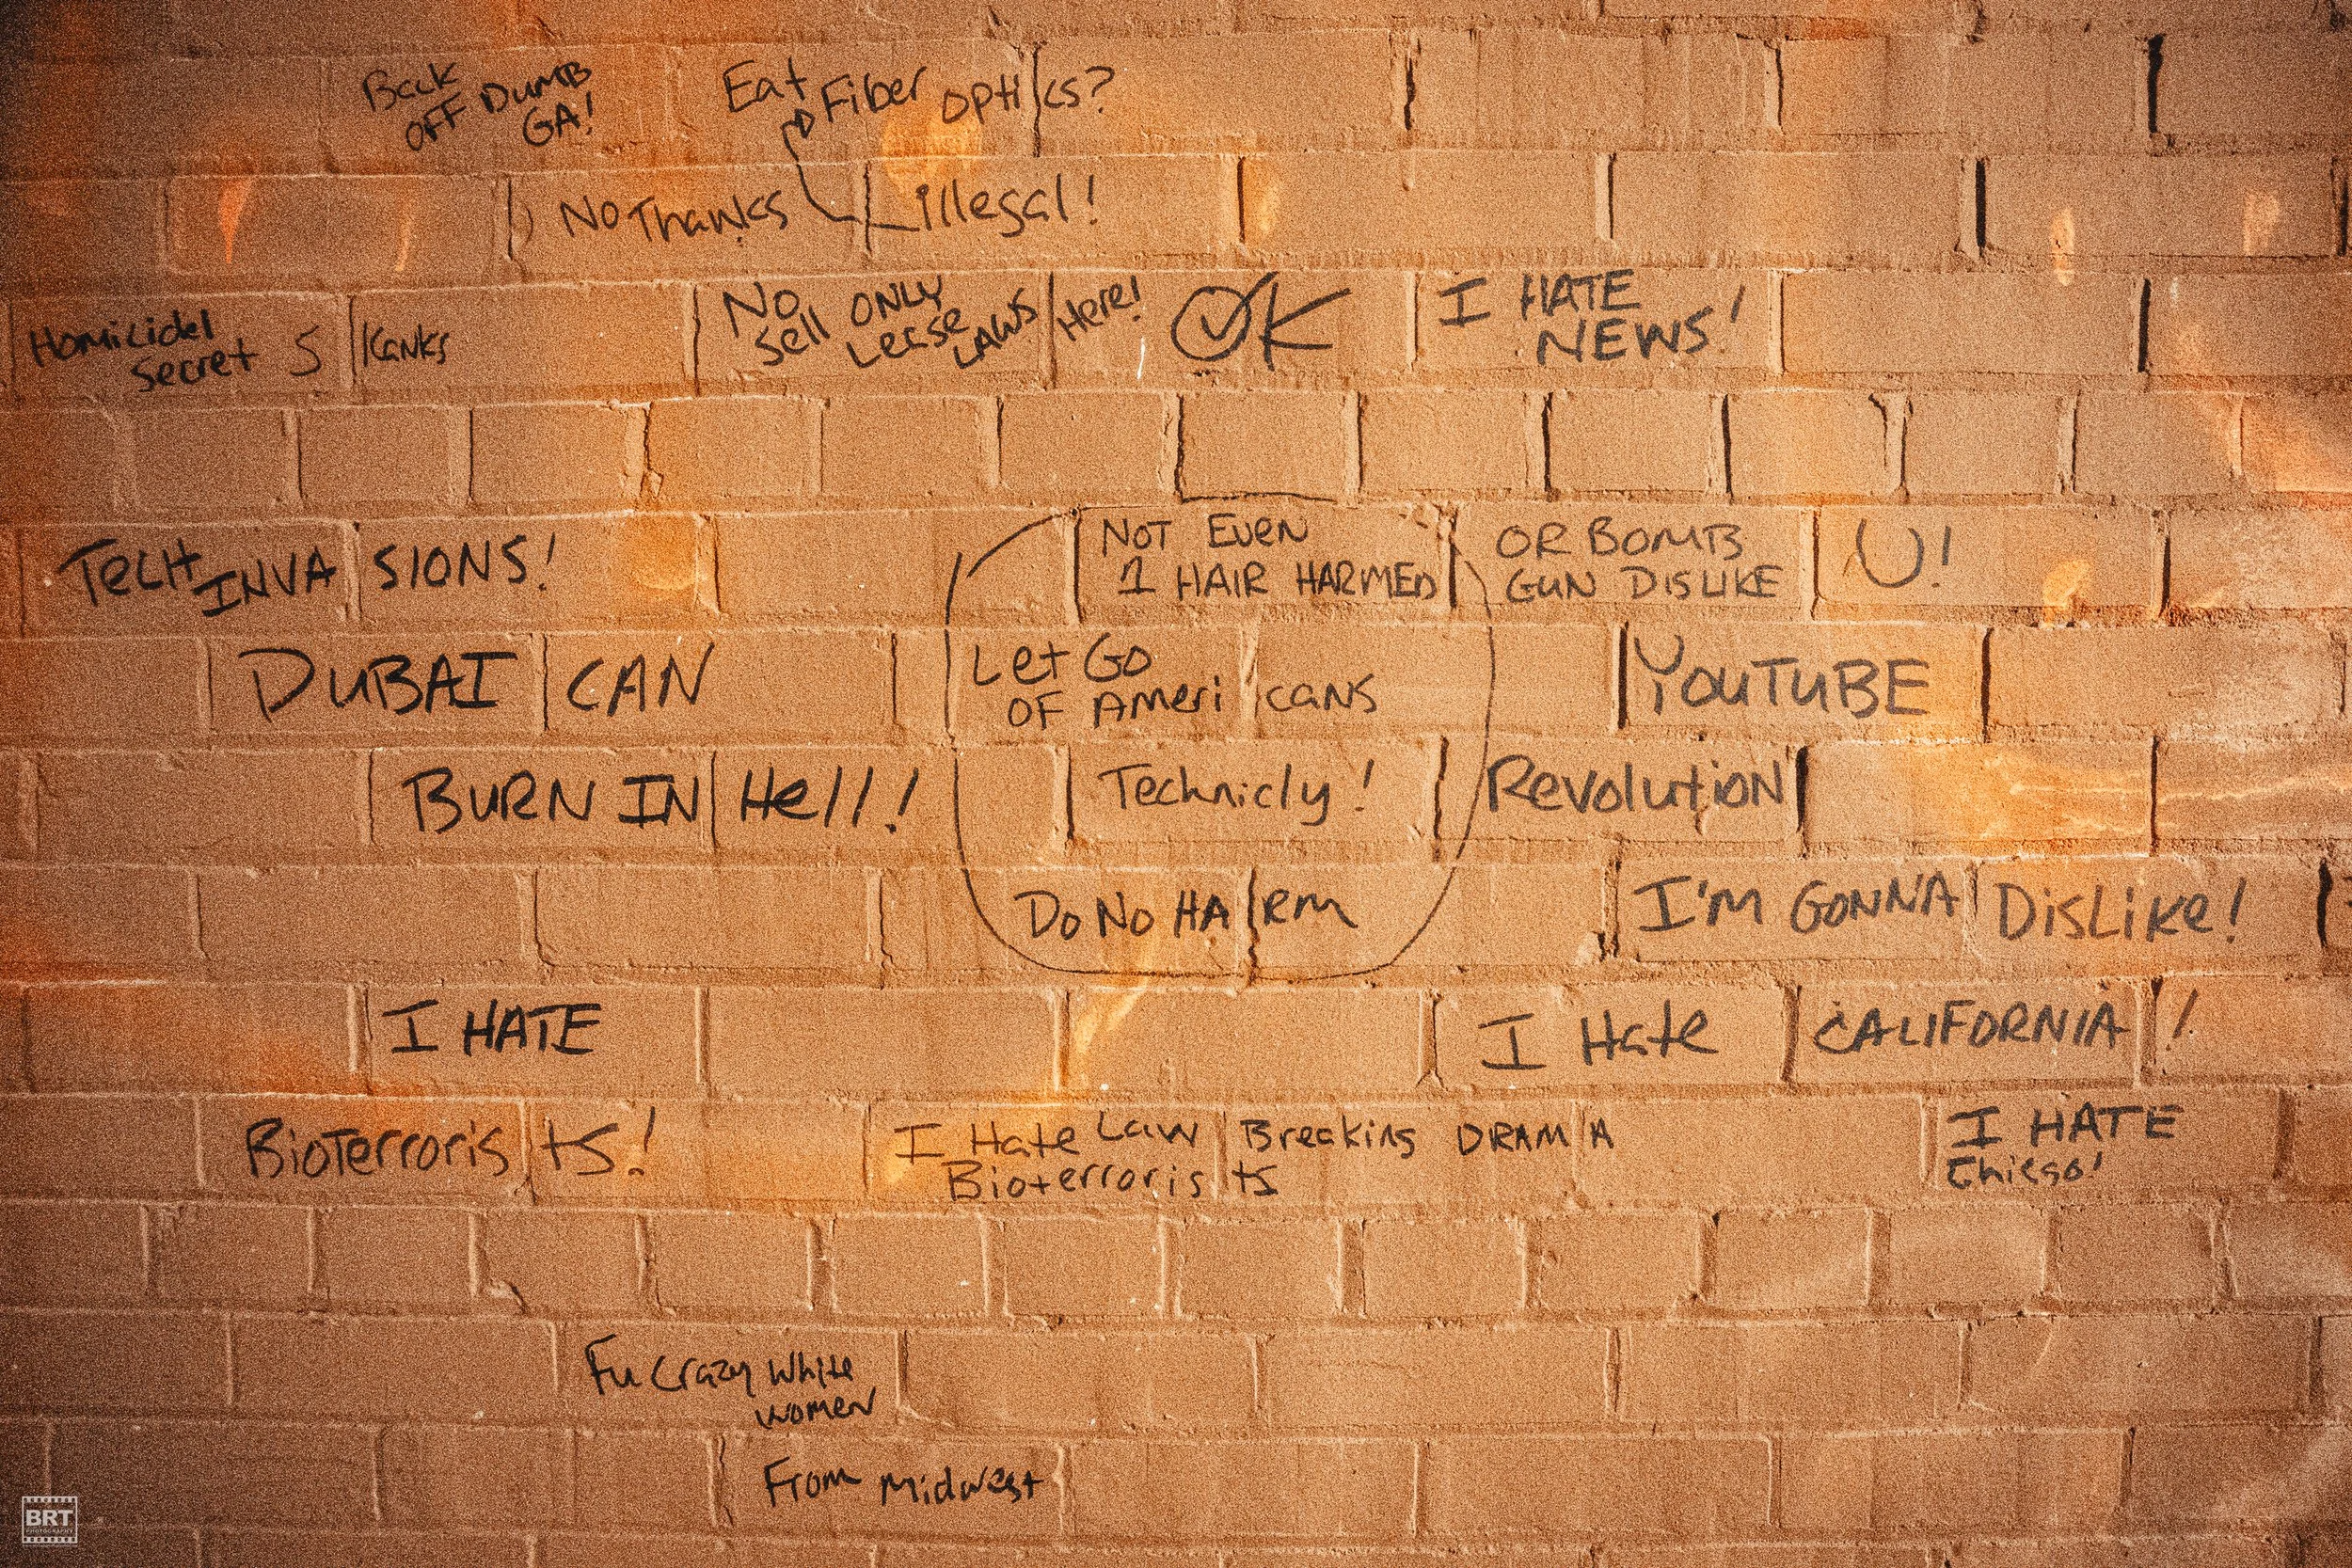 Back
OFF DUMB
GA!
Eat Fiber optics?
No Thanks
illegal!
Homicidel
Secret SKanks
No
Sell ONLY
Lease
LAWS Here!
OK
I HATE
NEWS!
TECH
INVASIONS!
DUBAI CAN
BURN IN Hell!
NOT EVEN
1 HAIR HARMED
Let Go
OF AMERicans
Technicly!
Do No HARm
OR BOMB
GUN DISLIKE
U!
YOUTUBE
Revolution
I'M GONNA DisLike!
I HATE
BioTerrorists!
I Hate CALIFORNIA!
I Hate Law Breaking DRAMA
Bioterrorists
I HATE
Fu Crazy White
women
From Midwest
BRT
PHOTOGRAPHY